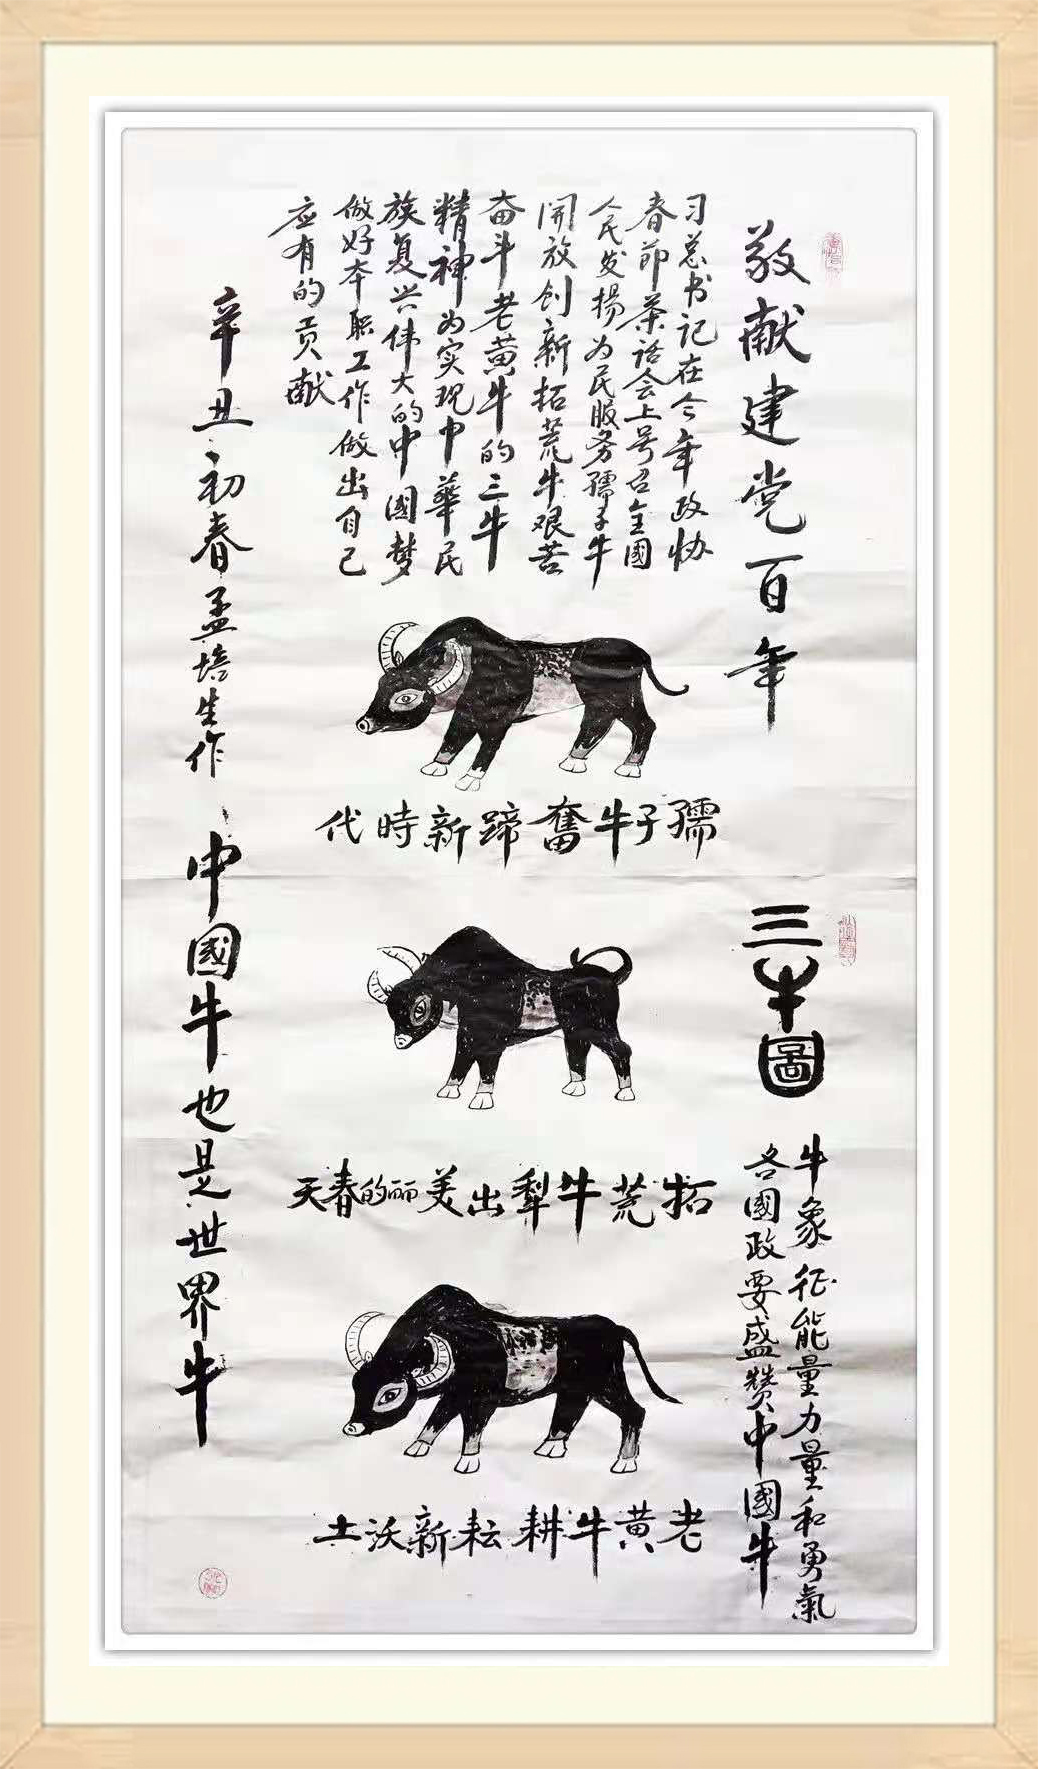 敬献建党百年
习总书记在今年政协
春节茶话会上号召全國
人民发揚为民服务孺子牛
開放创新拓荒牛艰苦
奋斗老黄牛的三牛
精神为实现中華民
族复兴伟大的中國梦
做好本职工作做出自己
应有的贡献
辛丑初春孟培生作
孺子牛奮蹄新時代
三牛圖
拓荒牛犁出美丽的春天
牛象征能量力量和勇氣
各國政要盛赞中國牛
老黄牛耕耘新沃土
中國牛也是世界牛